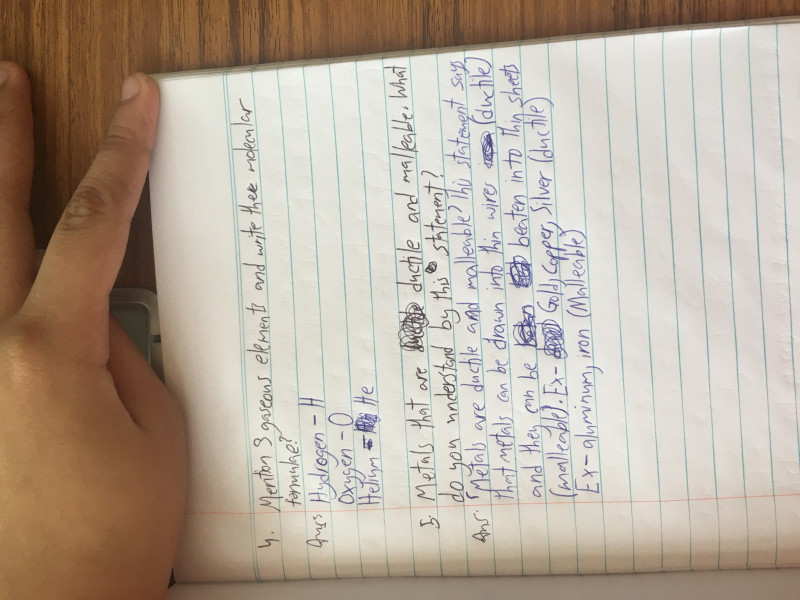 4. Mention 3 gaseous elements and write there molecular
formulae?
Ans Hydrogen - H
Oxygen - O
Helium - He
5. Metals that are ductile and malleable. What
do you understand by this statement?
Ans. "Metals are ductile and malleable" this statement says
that metals can be drawn into thin wires (ductile)
and they can be beaten in to thin sheets
(malleable). Ex- Gold, Copper, Silver (ductile)
Ex- aluminum, iron (Malleable)